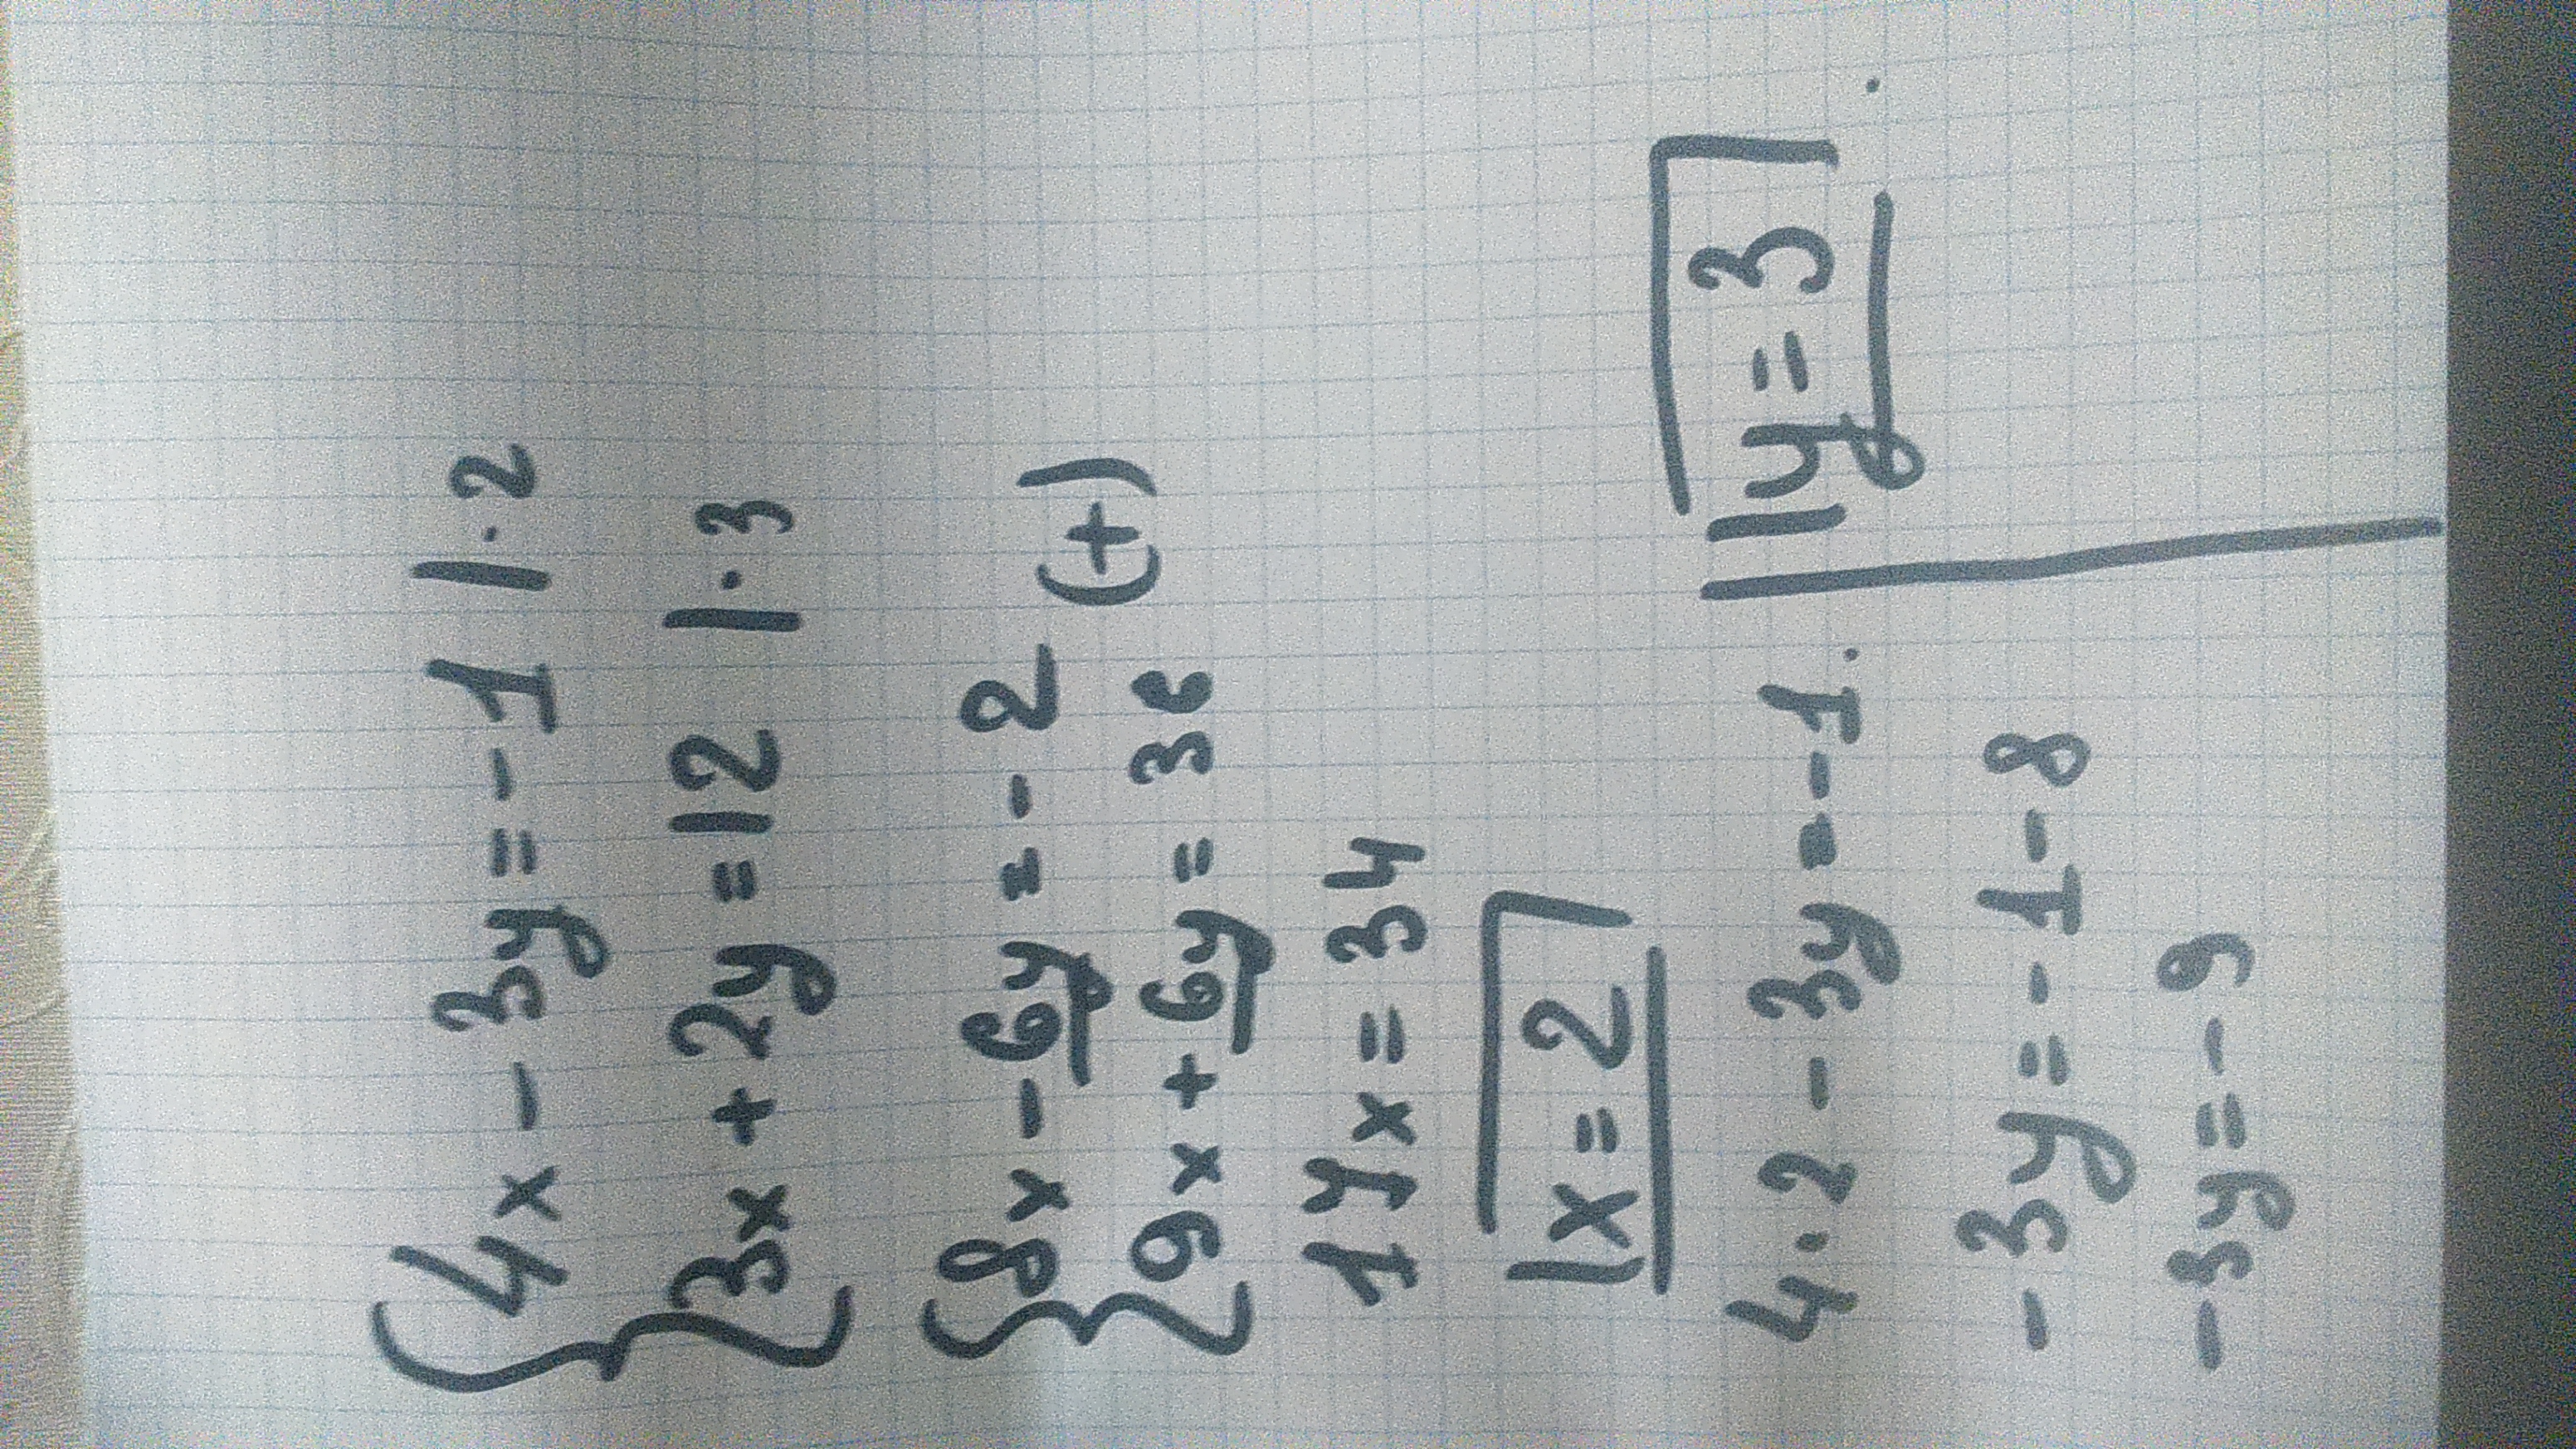 4x - 3y = -1 | · 2
3x + 2y = 12 | · 3
8x - 6y = - 2
(+)
9x + 6y = 36
17x = 34
x = 2
4 · 2 - 3y = -1.
-3y = -1 - 8
-3y = -9
y = 3